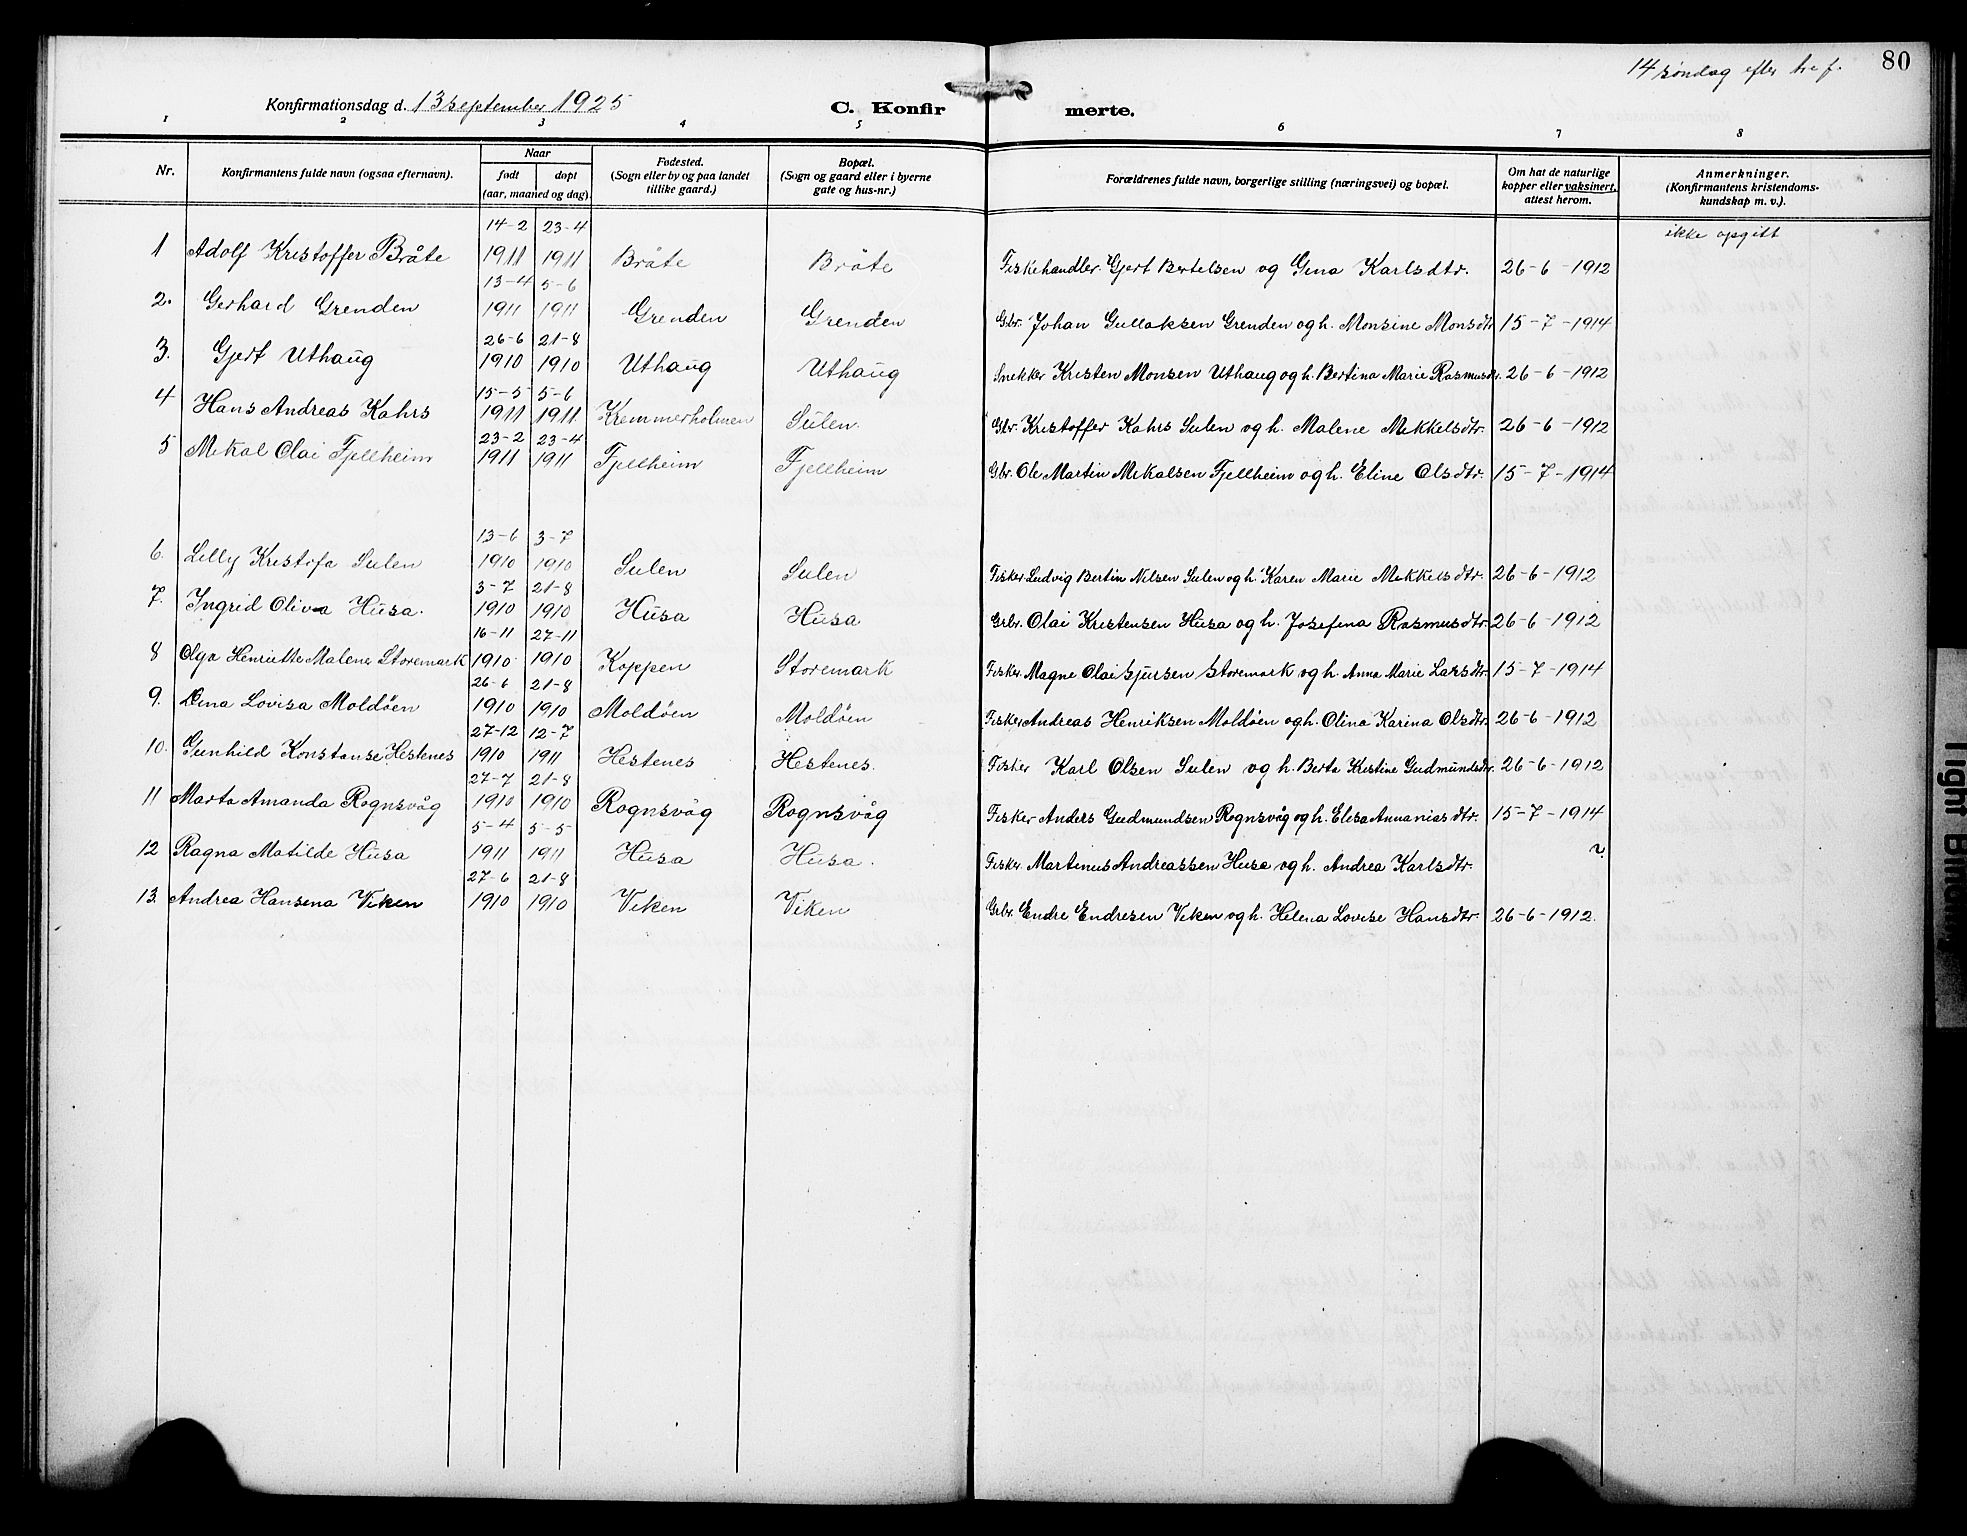 14 søndag efter tref. 80
Konfirmationsdag d. 13 september 1925 C. Konfirmerte.
1 2 3 4 5 6 7 8
Nr. Konfirmantens fulde navn (ogsaa efternavn). Naar født døpt (aar, maaned og dag) Fødested. (Sogn eller by og paa landet tillike gaard.) Bopæl. (Sogn og gaard eller i byerne gate og hus-nr.) Forældrenes fulde navn, borgerlige stilling (næringsvei) og bopæl. Om hat de naturlige kopper eller vaksinert, attest herom. Anmerkninger. (Konfirmantens kristendoms-kundskap m. v.).
ikke opgitt
1 Adolf Kristoffer Bråte 14-2 1911 23-4 1911 Bråte Bråte Fiskehandler Gjert Bertelsen og Gina Karlsdtr. 26-6-1912
2. Gerhard Grenden 13-4 1911 5-6 1911 Grenden Grenden Gbr. Johan Gullaksen Grenden og h. Monsine Monsdtr 15-7-1914
3. Gjert Uthaug 26-6 1910 21-8 1910 Uthaug Uthaug Snekker Kristen Monsen Uthaug og h. Bertina Marie Rasmusdtr. 26-6-1912
4 Hans Andreas Kahrs 15-5 1911 5-6 1911. Kremmerholmen Sulen. Gbr. Kristoffer Kahrs Sulen og h. Malene Mikkelsdtr. 26-6-1912
5 Mikal Olai Fjellheim 23-2 1911 23-4 1911 Fjellheim Fjellheim Gbr. Ole Martin Mikalsen Fjellheim og h. Eline Olsdtr. 15-7-1914
6. Lilly Kristofa Sulen 13-6 1910 3-7 1910 Sulen Sulen Fisker Ludvig Bertin Nilsen Sulen og h. Karen Marie Mikkelsdtr. 26-6-1912
7. Ingrid Oliva Husa. 3-7 1910 21-8 1910 Husa Husa Grbr. Olai Kristensen Husa og h. Josefina Rasmusdtr 26-6-1912
8 Olga Henriette Malene Storemark 16-11 1910 27-11 1910 Koppen Storemark Fisker Magne Olai Gjursen Storemark og h. Anna Marie Larsdtr. 15-7-1914
9. Dina Lovisa Moldöen 26-6 1910 21-8 1910 Moldöen Moldöen Fisker Andreas Henriksen Moldöen og h. Olina Karina Olsdtr. 26-6-1912
10. Gunhild Konstanse Hestenes 27-12 1910 12-7 1911 Hestenes Hestenes. Fisker Karl Olsen Sulen og h. Berta Kristine Gudmundsdtr. 26-6-1912
11 Marta Amanda Rognsvåg 27-7 1910 21-8 1910 Rognsvåg Rognsvåg Fisker Anders Gudmundsen Rognsvåg og h. Elisa Annaniasdtr. 15-7-1914
12 Ragna Matilde Husa 5-4 1911 5-5 1911 Husa Husa. Fisker Martinus Andreassen Husa og h. Andrea Karlsdtr. ?
13. Andrea Hansena Viken 27-6 1910 21-8 1910 Viken Viken Grbr. Endre Endresen Viken og h. Helena Lovise Hansdtr. 26-6-1912.
Tight Bindi